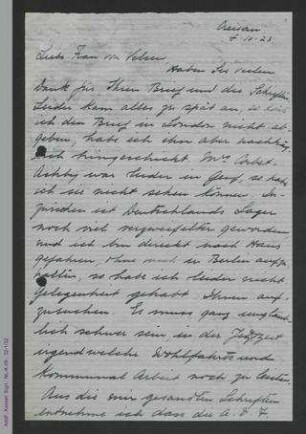 7.10.23.
Liebe Frau von Velsen.
Haben Sie vielen
Dank für Ihren Brief und die Schriften.
Leider kam alles zu spät an, so dass
ich den Brief in London nicht ab-
geben, habe ich ihn aber nachträg-
lich hingeschickt. Mrs Corbet
Ashby war leider in Genf, so habe
ich sie nicht sehen können. In-
zwischen ist Deutschlands Lage
noch viel verzweifelter geworden
und ich bin direkt nach Haus
gefahren, ohne mich in Berlin aufzu-
halten, so habe ich leider nicht
Gelegenheit gehabt Ihnen auf-
zusuchen. Es muss ganz unglaub-
lich schwer sein in der Jetztzeit
irgend welche Wohlfahrts und
Kommunal Arbeit noch zu leisten.
Aus die mir gesandten Schriften
entnehme ich dass die A. D. F.